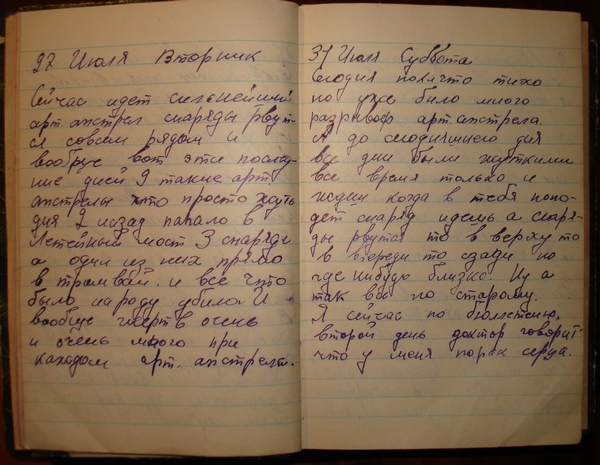 27 Июля Вторник
Сейчас идет сильнейший
арт. апстрел снаряды рвут-
ся совсем рядом и
вообще вот эти послед-
ние дней 9 такие арт.
апстрелы что просто жуть
дня 2 назад папало в
Летейный мост 3 снаряды
а один из них прямо
в трамвай. и все что
было народу убило. И
вообще жертв очень
и очень много при
каждом арт. апстреле.
31 Июля Суббота
Сегодня пока что тихо
но уже было много
разрывов арт. апстрела.
А до сегодняшнего дня
все дни были жуткими
все время только и
ждеш когда в тебя попо-
дет снаряд идешь а снаря-
ды рвутся то в верху то
в впереди то сзади но
где нибудь близко. Ну а
так все по старому.
Я сейчас по бюлетеню,
второй день доктор говорит
что у меня порок серца.